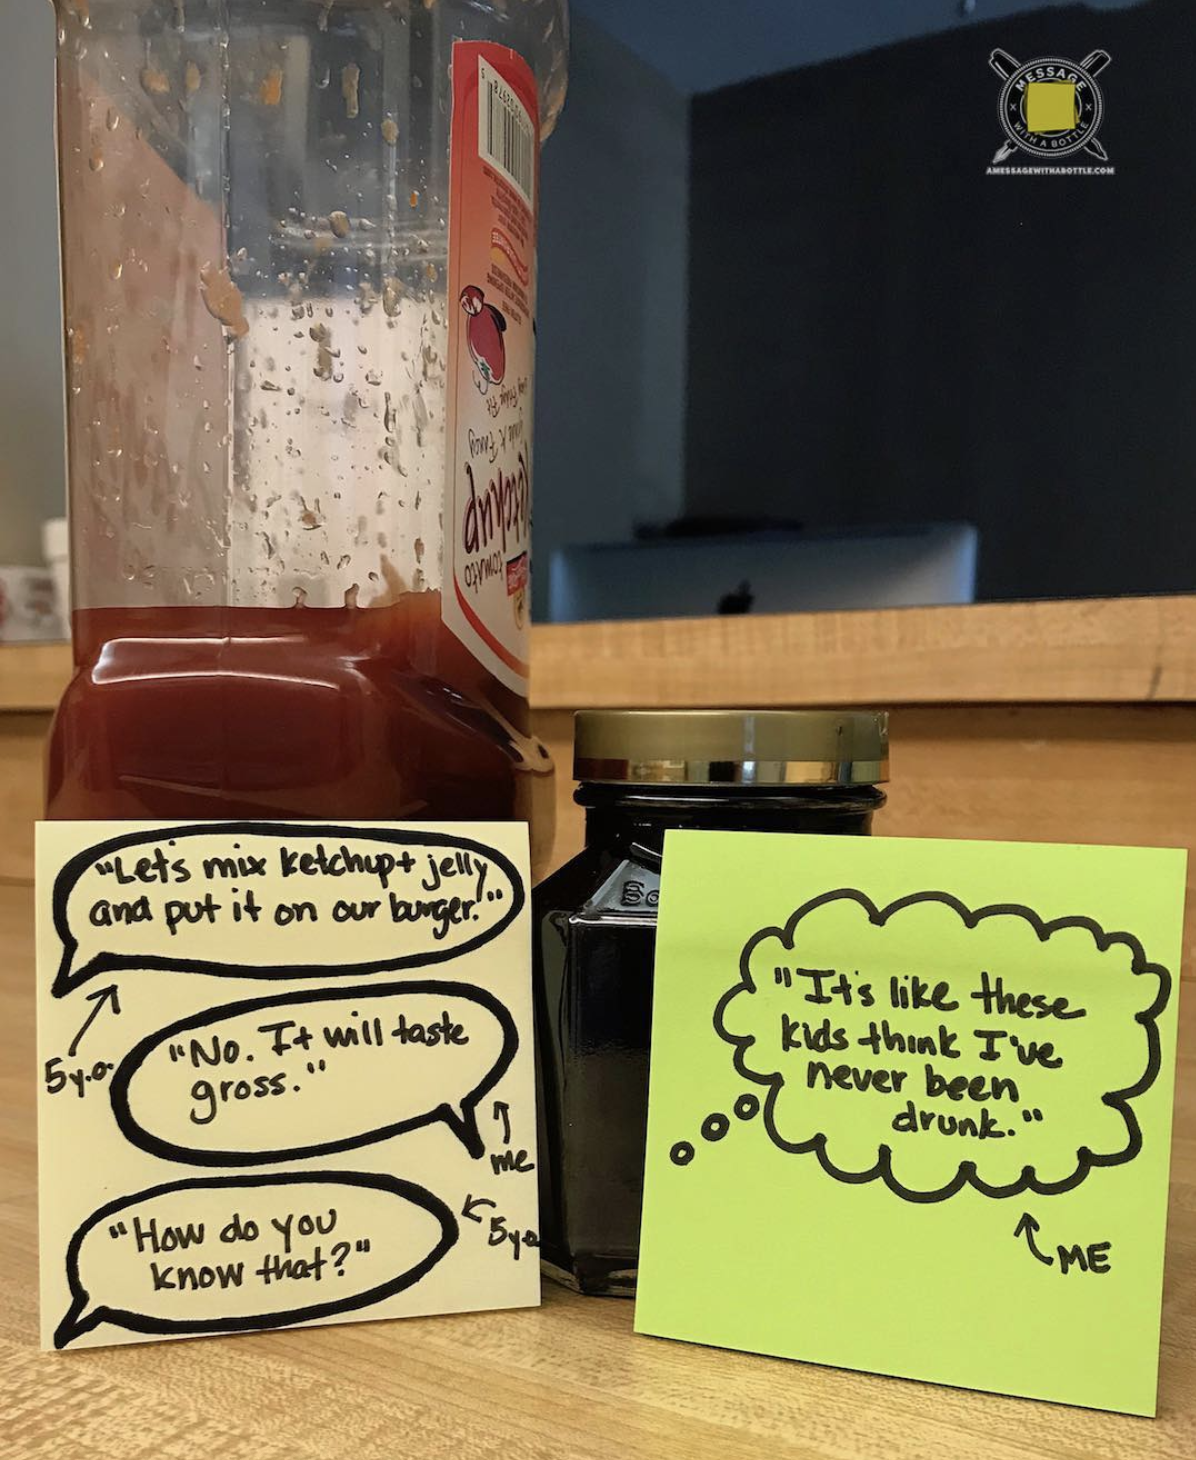 MESSAGE
WITH A BOTTLE
AMESSAGEWITHABOTTLE.COM
tomato
Ketchup
"Let's mix ketchup + jelly
and put it on our burger."
5 y.o.
"No. It will taste
gross."
me
"How do you
know that?"
5 y.o.
"It's like these
kids think I've
never been
drunk."
ME